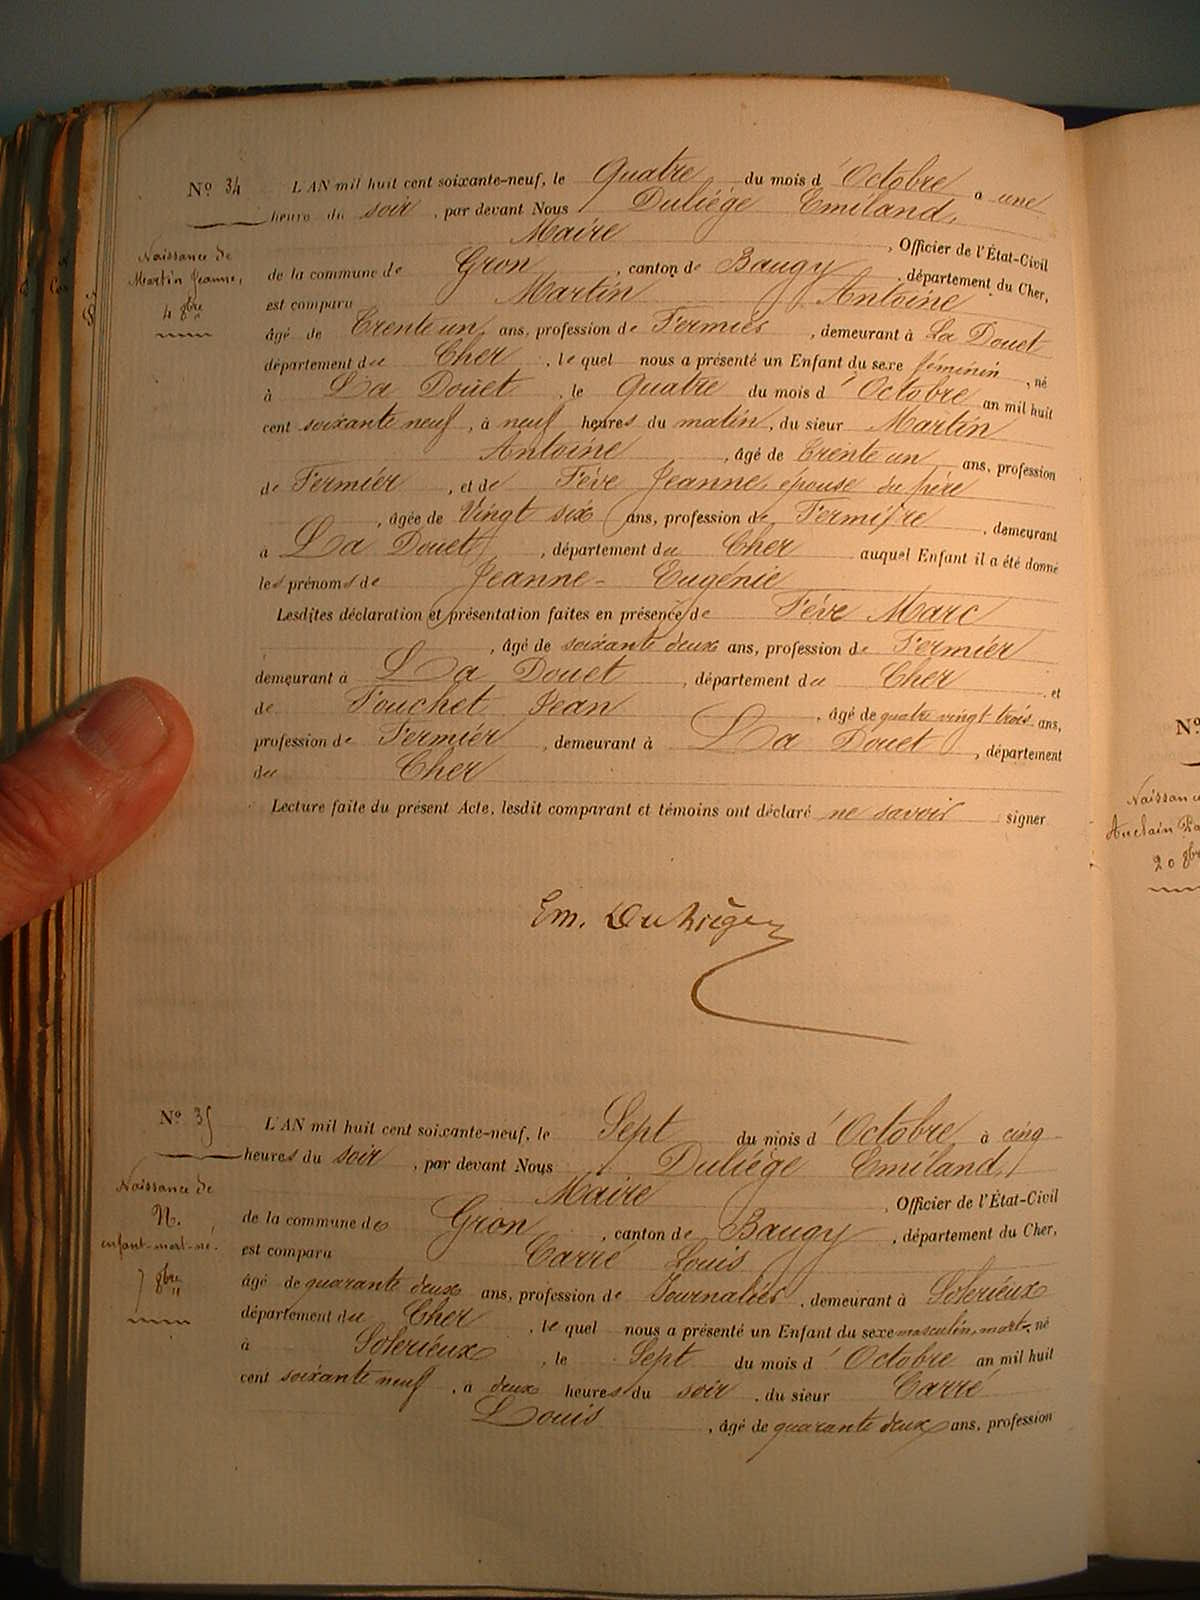 Nº 34
L'AN mil huit cent soixante-neuf, le Quatre du mois d'Octobre a une
heure du soir, par devant Nous Duliége Emiland,
Maire, Officier de l'État-Civil
Naissance de
Martin Jeanne,
4 8bre
de la commune de Gron, canton de Baugy, département du Cher,
est comparu Martin Antoine
âgé de Trente un ans, profession de Fermier, demeurant à La Douet
département du Cher, lequel nous a présenté un Enfant du sexe féminin, né
à La Douet, le Quatre du mois d'Octobre an mil huit
cent soixante neuf, à neuf heures du matin, du sieur Martin
Antoine, âgé de Trente un ans, profession
de Fermier, et de Féve Jeanne, épouse du père
, âgée de Vingt six ans, profession de Fermière, demeurant
à La Douet, département du Cher auquel Enfant il a été donné
les prénoms de Jeanne - Eugénie
Lesdites déclaration et présentation faites en présence de Féve Marc
, âgé de soixante deux ans, profession de Fermier
demeurant à La Douet, département du Cher, et
de Fouchet Jean, âgé de quatre vingt trois ans,
profession de Fermier, demeurant à La Douet, département
du Cher
Lecture faite du présent Acte, lesdit comparant et témoins ont déclaré ne savoir signer
Em. Duliége
Nº 35
L'AN mil huit cent soixante-neuf, le Sept du mois d'Octobre, à cinq
heures du soir, par devant Nous Duliége Emiland,
Maire, Officier de l'État-Civil
Naissance de
N.
enfant-mort-né.
7 8bre
de la commune de Gron, canton de Baugy, département du Cher,
est comparu Carré Louis
âgé de quarante deux ans, profession de Journalier, demeurant à Solerieux
département du Cher, lequel nous a présenté un Enfant du sexe masculin, mort-né
à Solerieux, le Sept du mois d'Octobre an mil huit
cent soixante neuf, à deux heures du soir, du sieur Carré
Louis, âgé de quarante deux ans, profession
Nº
Naissance
Auclain
20 8bre